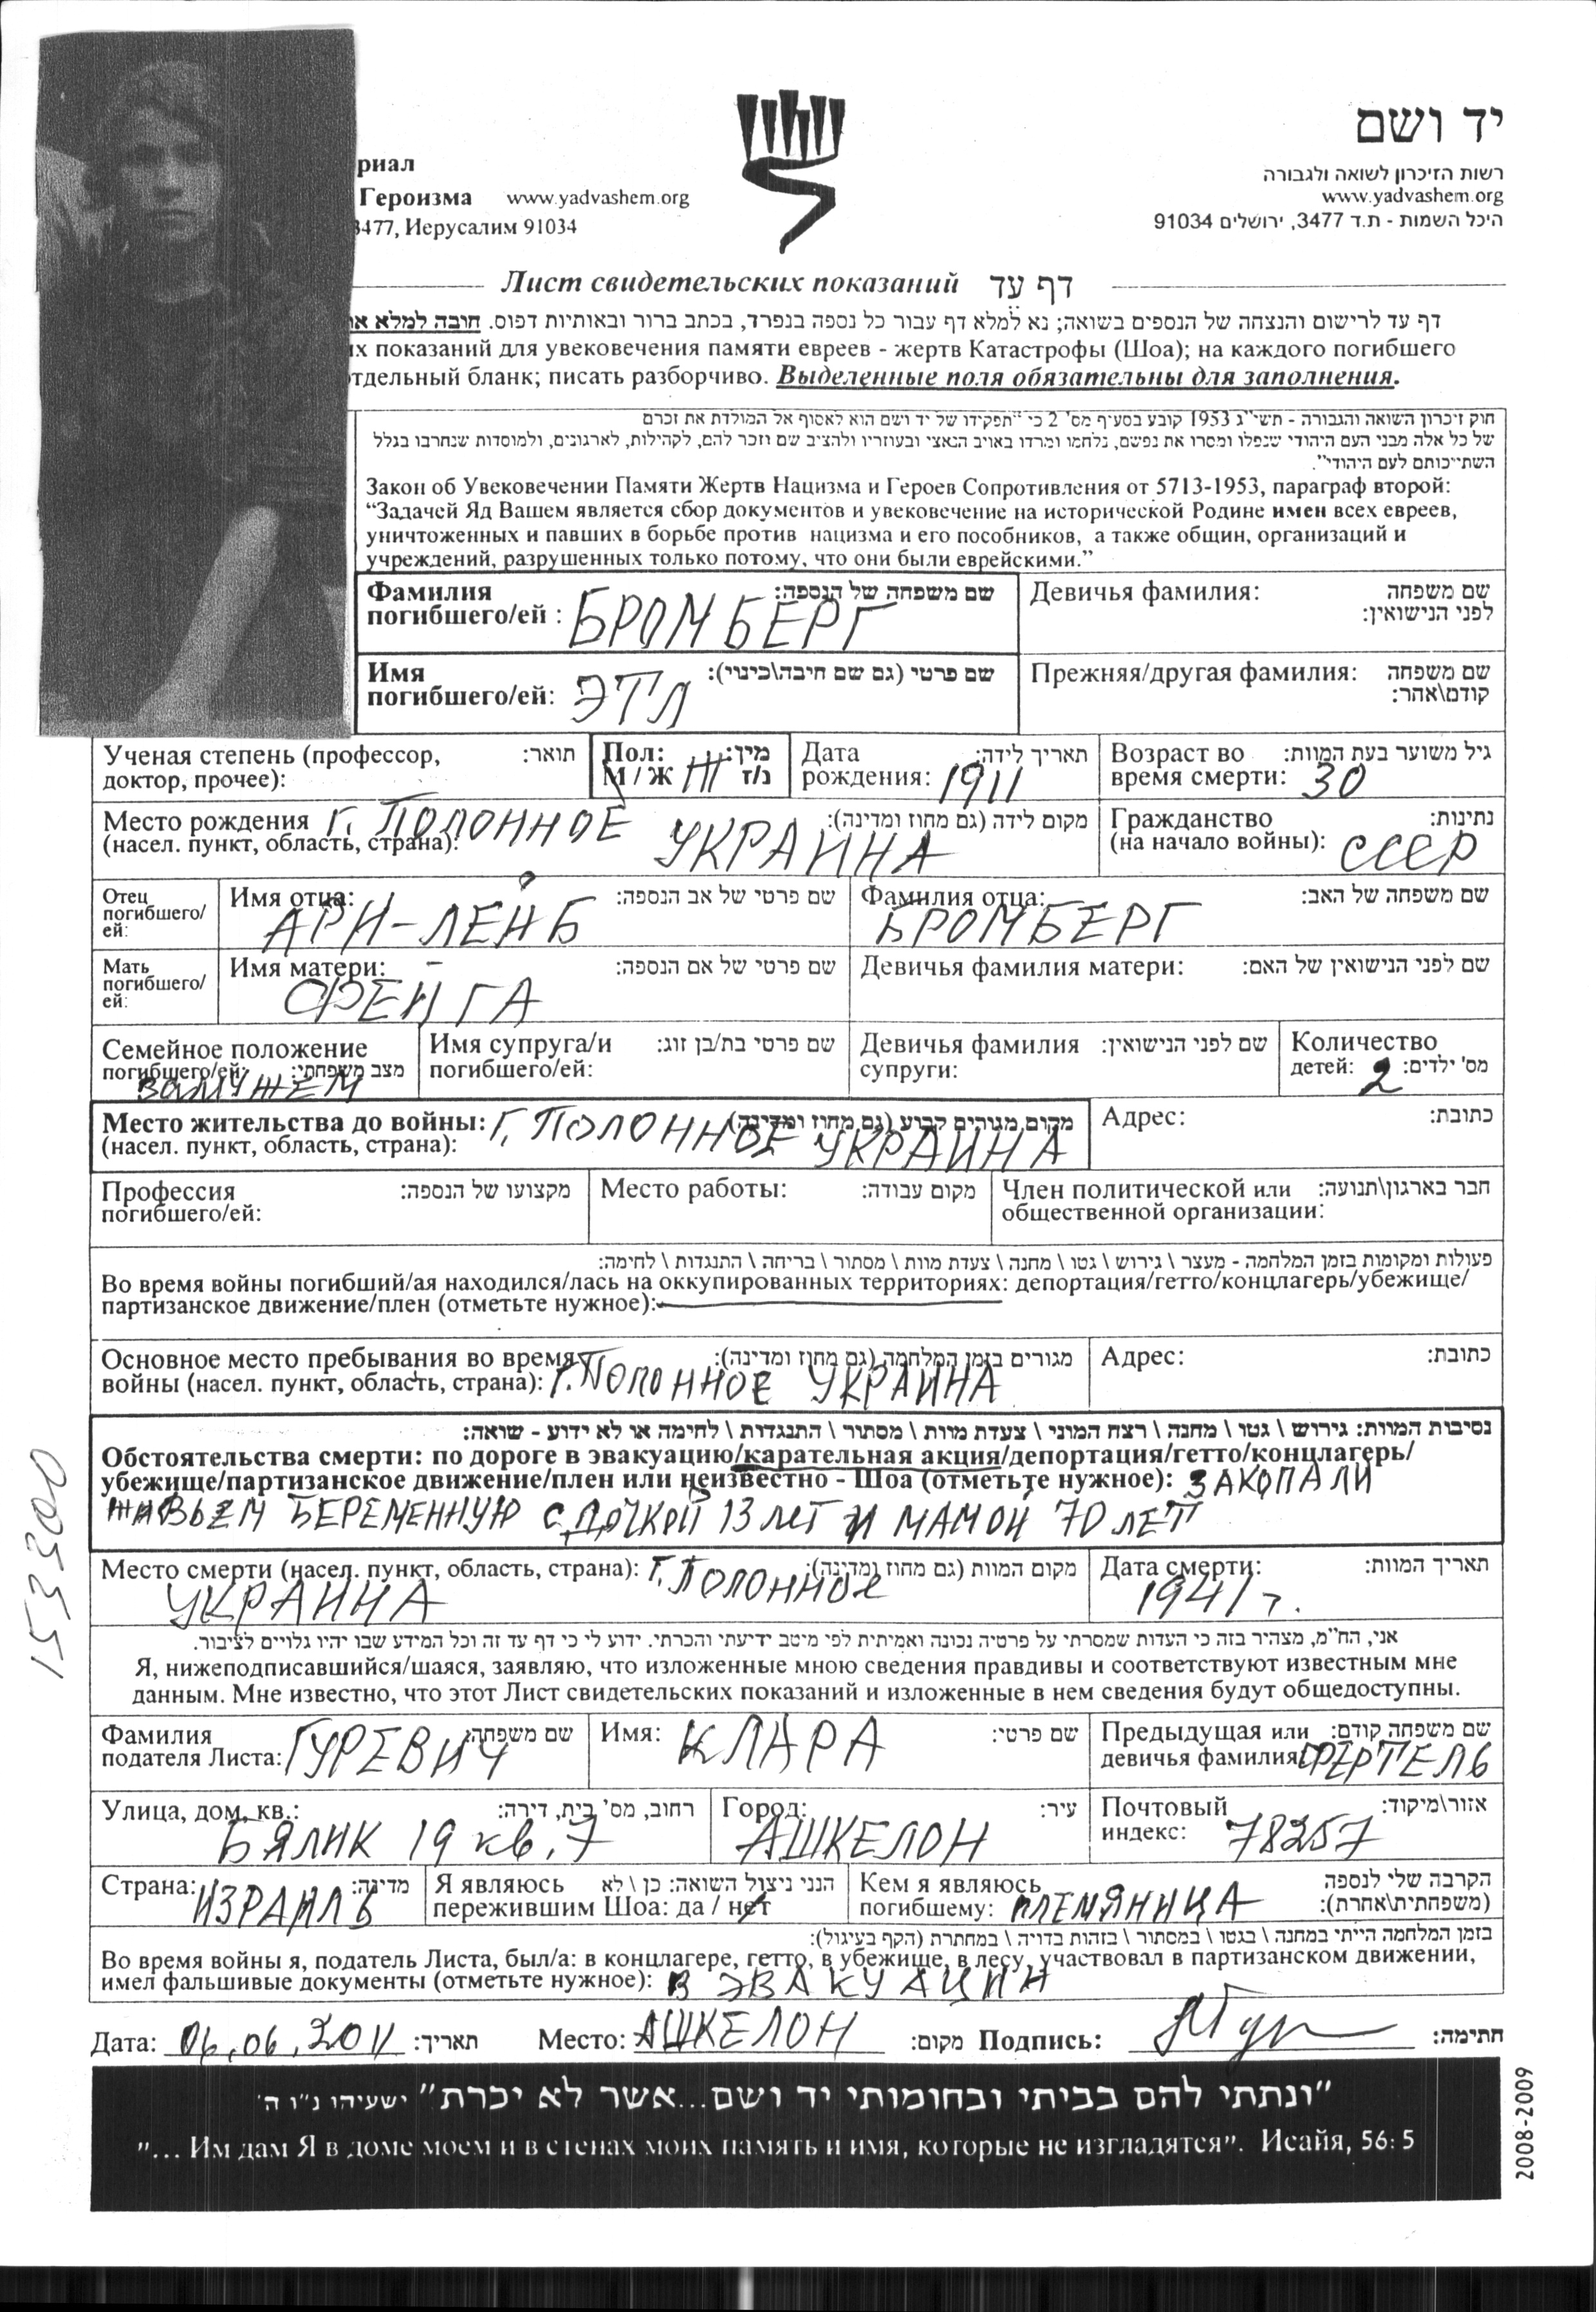 יד ושם
רשות הזיכרון לשואה ולגבורה
www.yadvashem.org
היכל השמות - ת.ד 3477, ירושלים 91034
риал
Героизма www.yadvashem.org
3477, Иерусалим 91034
Лист свидетельских показаний דף עד
דף עד לרישום והנצחה של הנספים בשואה; נא למלא דף עבור כל נספה בנפרד, בכתב ברור ובאותיות דפוס. חובה למלא
их показаний для увековечения памяти евреев - жертв Катастрофы (Шоа); на каждого погибшего
отдельный бланк; писать разборчиво. Выделенные поля обязательны для заполнения.
חוק זיכרון השואה והגבורה - תשי"ג 1953 קובע בסעיף מס' 2 כי "תפקידו של יד ושם הוא לאסוף אל המולדת את זכרם
של כל אלה מבני העם היהודי שנפלו ומסרו את נפשם, נלחמו ומרדו באויב הנאצי ובעוזריו ולהציב שם וזכר להם, לקהילות, לארגונים, ולמוסדות שנחרבו בגלל
השתייכותם לעם היהודי".
Закон об Увековечении Памяти Жертв Нацизма и Героев Сопротивления от 5713-1953, параграф второй:
"Задачей Яд Вашем является сбор документов и увековечение на исторической Родине имен всех евреев,
уничтоженных и павших в борьбе против нацизма и его пособников, а также общин, организаций и
учреждений, разрушенных только потому, что они были еврейскими."
Фамилия погибшего/ей : БРОМБЕРГ שם משפחה של הנספה:
Девичья фамилия: שם משפחה לפני הנישואין:
Имя погибшего/ей: ЭТЛ שם פרטי (גם שם חיבה\כינוי):
Прежняя/другая фамилия: שם משפחה קודם\אחר:
Ученая степень (профессор, доктор, прочее): תואר:
Пол: М / Ж Ж מין: ז/נ
Дата рождения: 1911 תאריך לידה:
Возраст во время смерти: 30 גיל משוער בעת המוות:
Место рождения (насел. пункт, область, страна): Г. ПОЛОННОЕ УКРАИНА מקום לידה (גם מחוז ומדינה):
Гражданство (на начало войны): СССР נתינות:
Отец погибшего/ей:
Имя отца: АРИ-ЛЕЙБ שם פרטי של אב הנספה:
Фамилия отца: БРОМБЕРГ שם משפחה של האב:
Мать погибшего/ей:
Имя матери: ФЕЙГА שם פרטי של אם הנספה:
Девичья фамилия матери: שם לפני הנישואין של האם:
Семейное положение погибшего/ей: ЗАМУЖЕМ מצב משפחתי:
Имя супруга/и погибшего/ей: שם פרטי בת/בן זוג:
Девичья фамилия супруги: שם לפני הנישואין:
Количество детей: 2 מס' ילדים:
Место жительства до войны: (насел. пункт, область, страна): Г. ПОЛОННОЕ УКРАИНА מקום מגורים קבוע (גם מחוז ומדינה)
Адрес: כתובת:
Профессия погибшего/ей: מקצועו של הנספה:
Место работы: מקום עבודה:
Член политической или общественной организации: חבר בארגון\תנועה:
פעולות ומקומות בזמן המלחמה - מעצר \ גירוש \ גטו \ מחנה \ צעדת מוות \ מסתור \ בריחה \ התנגדות \ לחימה:
Во время войны погибший/ая находился/лась на оккупированных территориях: депортация/гетто/концлагерь/убежище/
партизанское движение/плен (отметьте нужное):
Основное место пребывания во время войны (насел. пункт, область, страна): Г. ПОЛОННОЕ УКРАИНА מגורים בזמן המלחמה (גם מחוז ומדינה):
Адрес: כתובת:
נסיבות המוות: גירוש \ גטו \ מחנה \ רצח המוני \ צעדת מוות \ מסתור \ התנגדות \ לחימה או לא ידוע - שואה:
Обстоятельства смерти: по дороге в эвакуацию/карательная акция/депортация/гетто/концлагерь/
убежище/партизанское движение/плен или неизвестно - Шоа (отметьте нужное): ЗАКОПАЛИ
ЖИВЬЕМ БЕРЕМЕННУЮ С ДОЧКОЙ 13 ЛЕТ И МАМОЙ 70 ЛЕТ
Место смерти (насел. пункт, область, страна): Г. ПОЛОННОЕ УКРАИНА מקום המוות (גם מחוז ומדינה):
Дата смерти: 1941 г. תאריך המוות:
אני, הח"מ, מצהיר בזה כי העדות שמסרתי על פרטיה נכונה ואמיתית לפי מיטב ידיעתי והכרתי. ידוע לי כי דף עד זה וכל המידע שבו יהיו גלויים לציבור.
Я, нижеподписавшийся/шаяся, заявляю, что изложенные мною сведения правдивы и соответствуют известным мне
данным. Мне известно, что этот Лист свидетельских показаний и изложенные в нем сведения будут общедоступны.
Фамилия подателя Листа: ГУРЕВИЧ שם משפחה:
Имя: КЛАРА שם פרטי:
Предыдущая или девичья фамилия: ФЕРТЕЛЬ שם משפחה קודם:
Улица, дом, кв.: БЯЛИК 19 кв. 7 רחוב, מס' בית, דירה:
Город: АШКЕЛОН עיר:
Почтовый индекс: 78257 אזור\מיקוד:
Страна: ИЗРАИЛЬ מדינה:
Я являюсь пережившим Шоа: да / нет הנני ניצול השואה: כן \ לא
Кем я являюсь погибшему: ПЛЕМЯННИЦА הקרבה שלי לנספה (משפחתית\אחרת):
בזמן המלחמה הייתי במחנה \ בגטו \ במסתור \ בזהות בדויה \ במחתרת (הקף בעיגול):
Во время войны я, податель Листа, был/а: в концлагере, гетто, в убежище, в лесу, участвовал в партизанском движении,
имел фальшивые документы (отметьте нужное): В ЭВАКУАЦИИ
Дата: 06.06.2011 תאריך: Место: АШКЕЛОН מקום: Подпись: חתימה:
"ונתתי להם בביתי ובחומותי יד ושם...אשר לא יכרת" ישעיהו נ"ו ה'
"... Им дам Я в доме моем и в стенах моих память и имя, которые не изгладятся". Исайя, 56: 5
2008-2009
153300